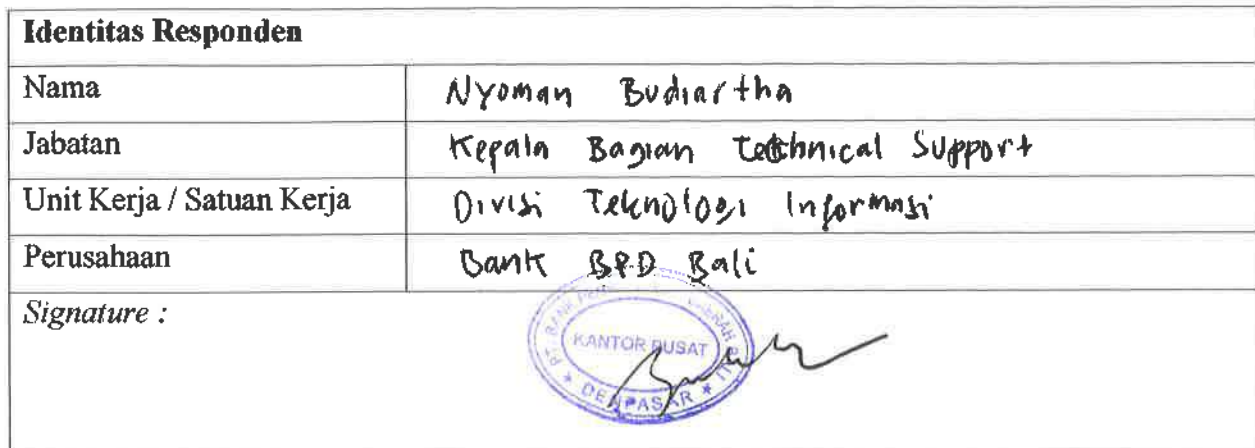 Identitas Responden
Nama Nyoman Budiartha
Jabatan Kepala Bagian Technical Support
Unit Kerja / Satuan Kerja Divisi Teknologi Informasi
Perusahaan Bank BPD Bali
Signature :
PT. BANK DAERAH BALI
KANTOR PUSAT
DENPASAR